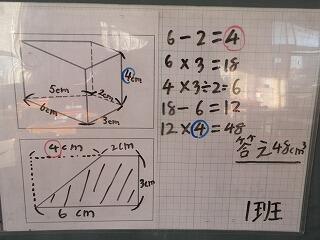 4cm
5cm
2cm
6cm
3cm
4cm
2cm
3cm
6cm
6-2=4
6×3=18
4×3÷2=6
18-6=12
12×4=48
答え48cm³
1班